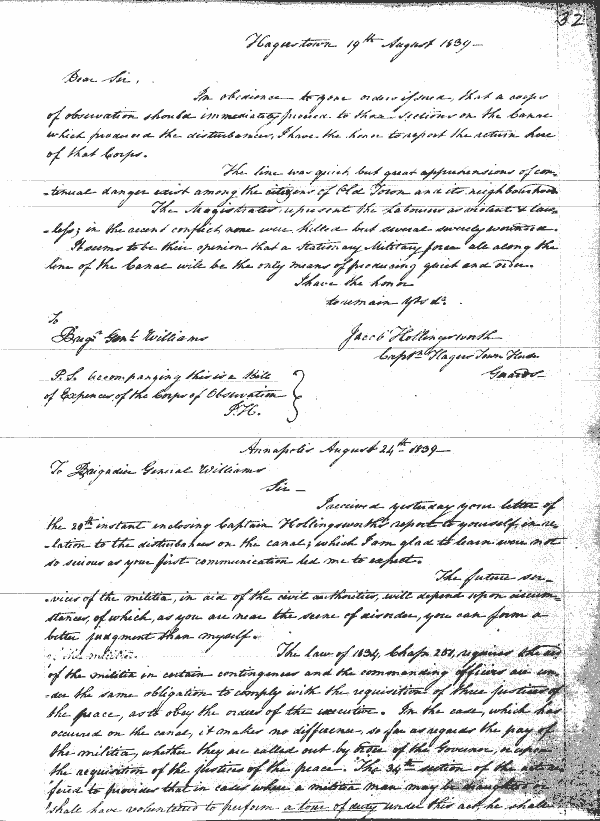 32
Hagerstown 19th August 1839—
Dear Sir,
In obedience to your orders issued, that a corps
of observation should immediately proceed to those sections on the Canal
which produced the disturbances, I have the honor to report the return here
of that Corps.
The line was quiet but great apprehensions of con-
-tinual danger exist among the citizens of Old Town and its neighbourhood
The Magistrates represent the Labourers as violent & law-
-less; in the recent conflict none were killed but several severely wounded.
It seems to be their opinion that a Stationary Military force all along the
line of the Canal will be the only means of producing quiet and order.
I have the honor
to remain yrs &c.
To
Brigr Genl. Williams
Jacob Hollingsworth
Captn. Hagers Town Horse
Guards
P.S. accompanying this is a Bill
of Expences of the Corps of Observation
J.H.
Annapolis August 24th 1839—
To Brigadier General Williams
Sir—
I received yesterday your letter of
the 20th instant inclosing Captain Hollingsworth's report to yourself, in re-
-lation to the disturbances on the canal; which I am glad to learn were not
so serious as your first communication led me to expect.
The future ser-
-vices of the militia, in aid of the civil authorities, will depend upon circum-
stances, of which, as you are near the scene of disorder, you can form a
better judgment than myself.
of the militia
The law of 1834, Chapr 251, requires the aid
of the militia in certain contingences and the commanding officers are un-
der the same obligation to comply with the requisition of three justices of
the peace, as to obey the orders of the executive. In the case, which has
occurred on the canal, it makes no difference, so far as regards the pay of
the militia, whether they are called out by those of the Governor, or upon
the requisition of the justices of the peace. The 34th section of the act re-
fered to provides that in cases where a militia man may be draughted or
shall have volunteered to perform a tour of duty under this act, he shall